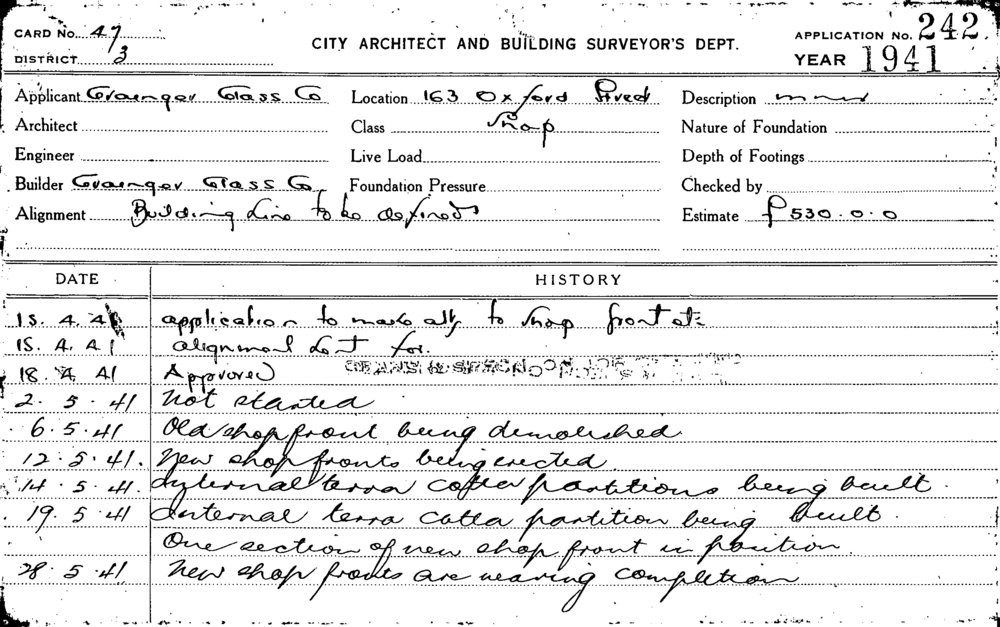 CARD No. 47/3
CITY ARCHITECT AND BUILDING SURVEYOR'S DEPT.
APPLICATION No. 242
DISTRICT
YEAR 1941
Applicant Grainger Glass Co Location 163 Oxford Street Description
Architect Class Shop Nature of Foundation
Engineer Live Load Depth of Footings
Builder Grainger Glass Co, Foundation Pressure Checked by
Alignment Building Line to be defined Estimate £530.0.0
DATE HISTORY
15. 4. 41 application to make alts to shop front etc
15. 4. 41 alignment for.
18. 4. 41 Approved
2. 5. 41 Not started
6. 5. 41 Old shop front being demolished.
12. 5. 41. New shop fronts being erected.
14. 5. 41. Internal terra cotta partitions being built.
19. 5. 41 Internal terra cotta partition being built.
One section of new shop front in position.
28. 5. 41 New shop fronts are nearing completion